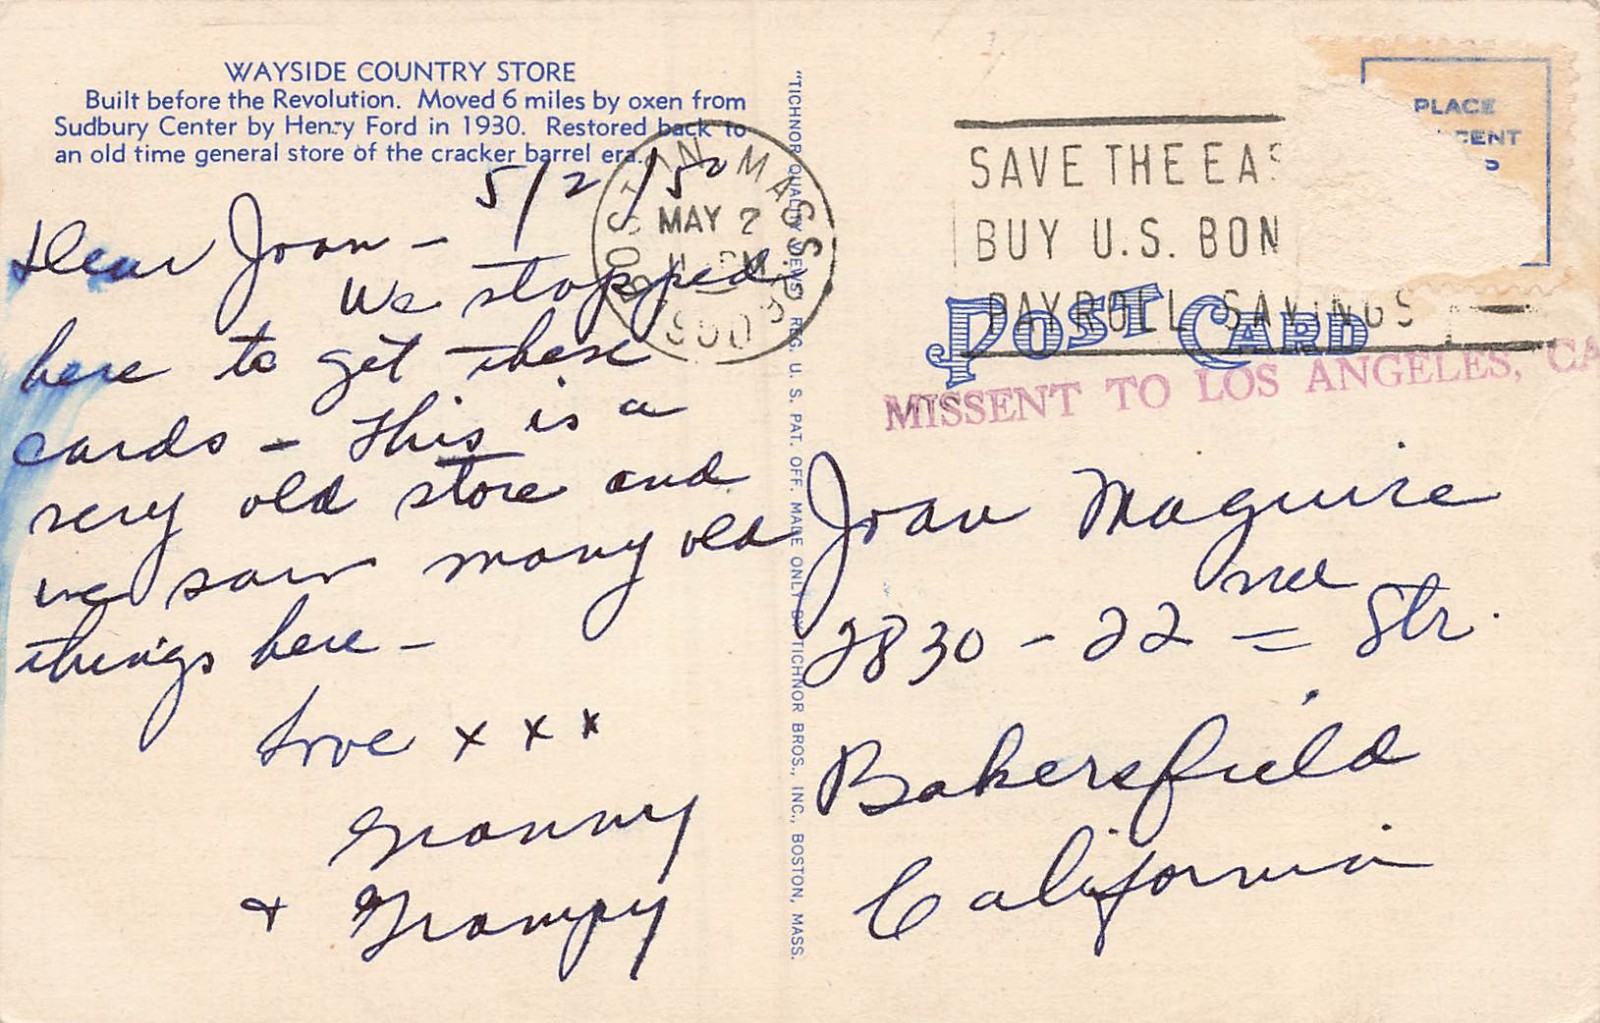 WAYSIDE COUNTRY STORE
Built before the Revolution. Moved 6 miles by oxen from
Sudbury Center by Henry Ford in 1930. Restored back to
an old time general store of the cracker barrel era.
5/2/50
Dear Joan -
We stopped
here to get these
cards - This is a
very old store and
we saw many old
things here -
Love x x x
Granny
+ Grampy
"TICHNOR QUALITY VIEWS" REG. U. S. PAT. OFF. MADE ONLY BY TICHNOR BROS., INC., BOSTON, MASS.
BOSTON MASS.
MAY 2
PM
1950
SAVE THE EAS
BUY U.S. BON
PAYROLL SAVINGS
PLACE
CENT
P
POST CARD
MISSENT TO LOS ANGELES, CA
Joan Maguire
2830 - 22 nd Str.
Bakersfield
California